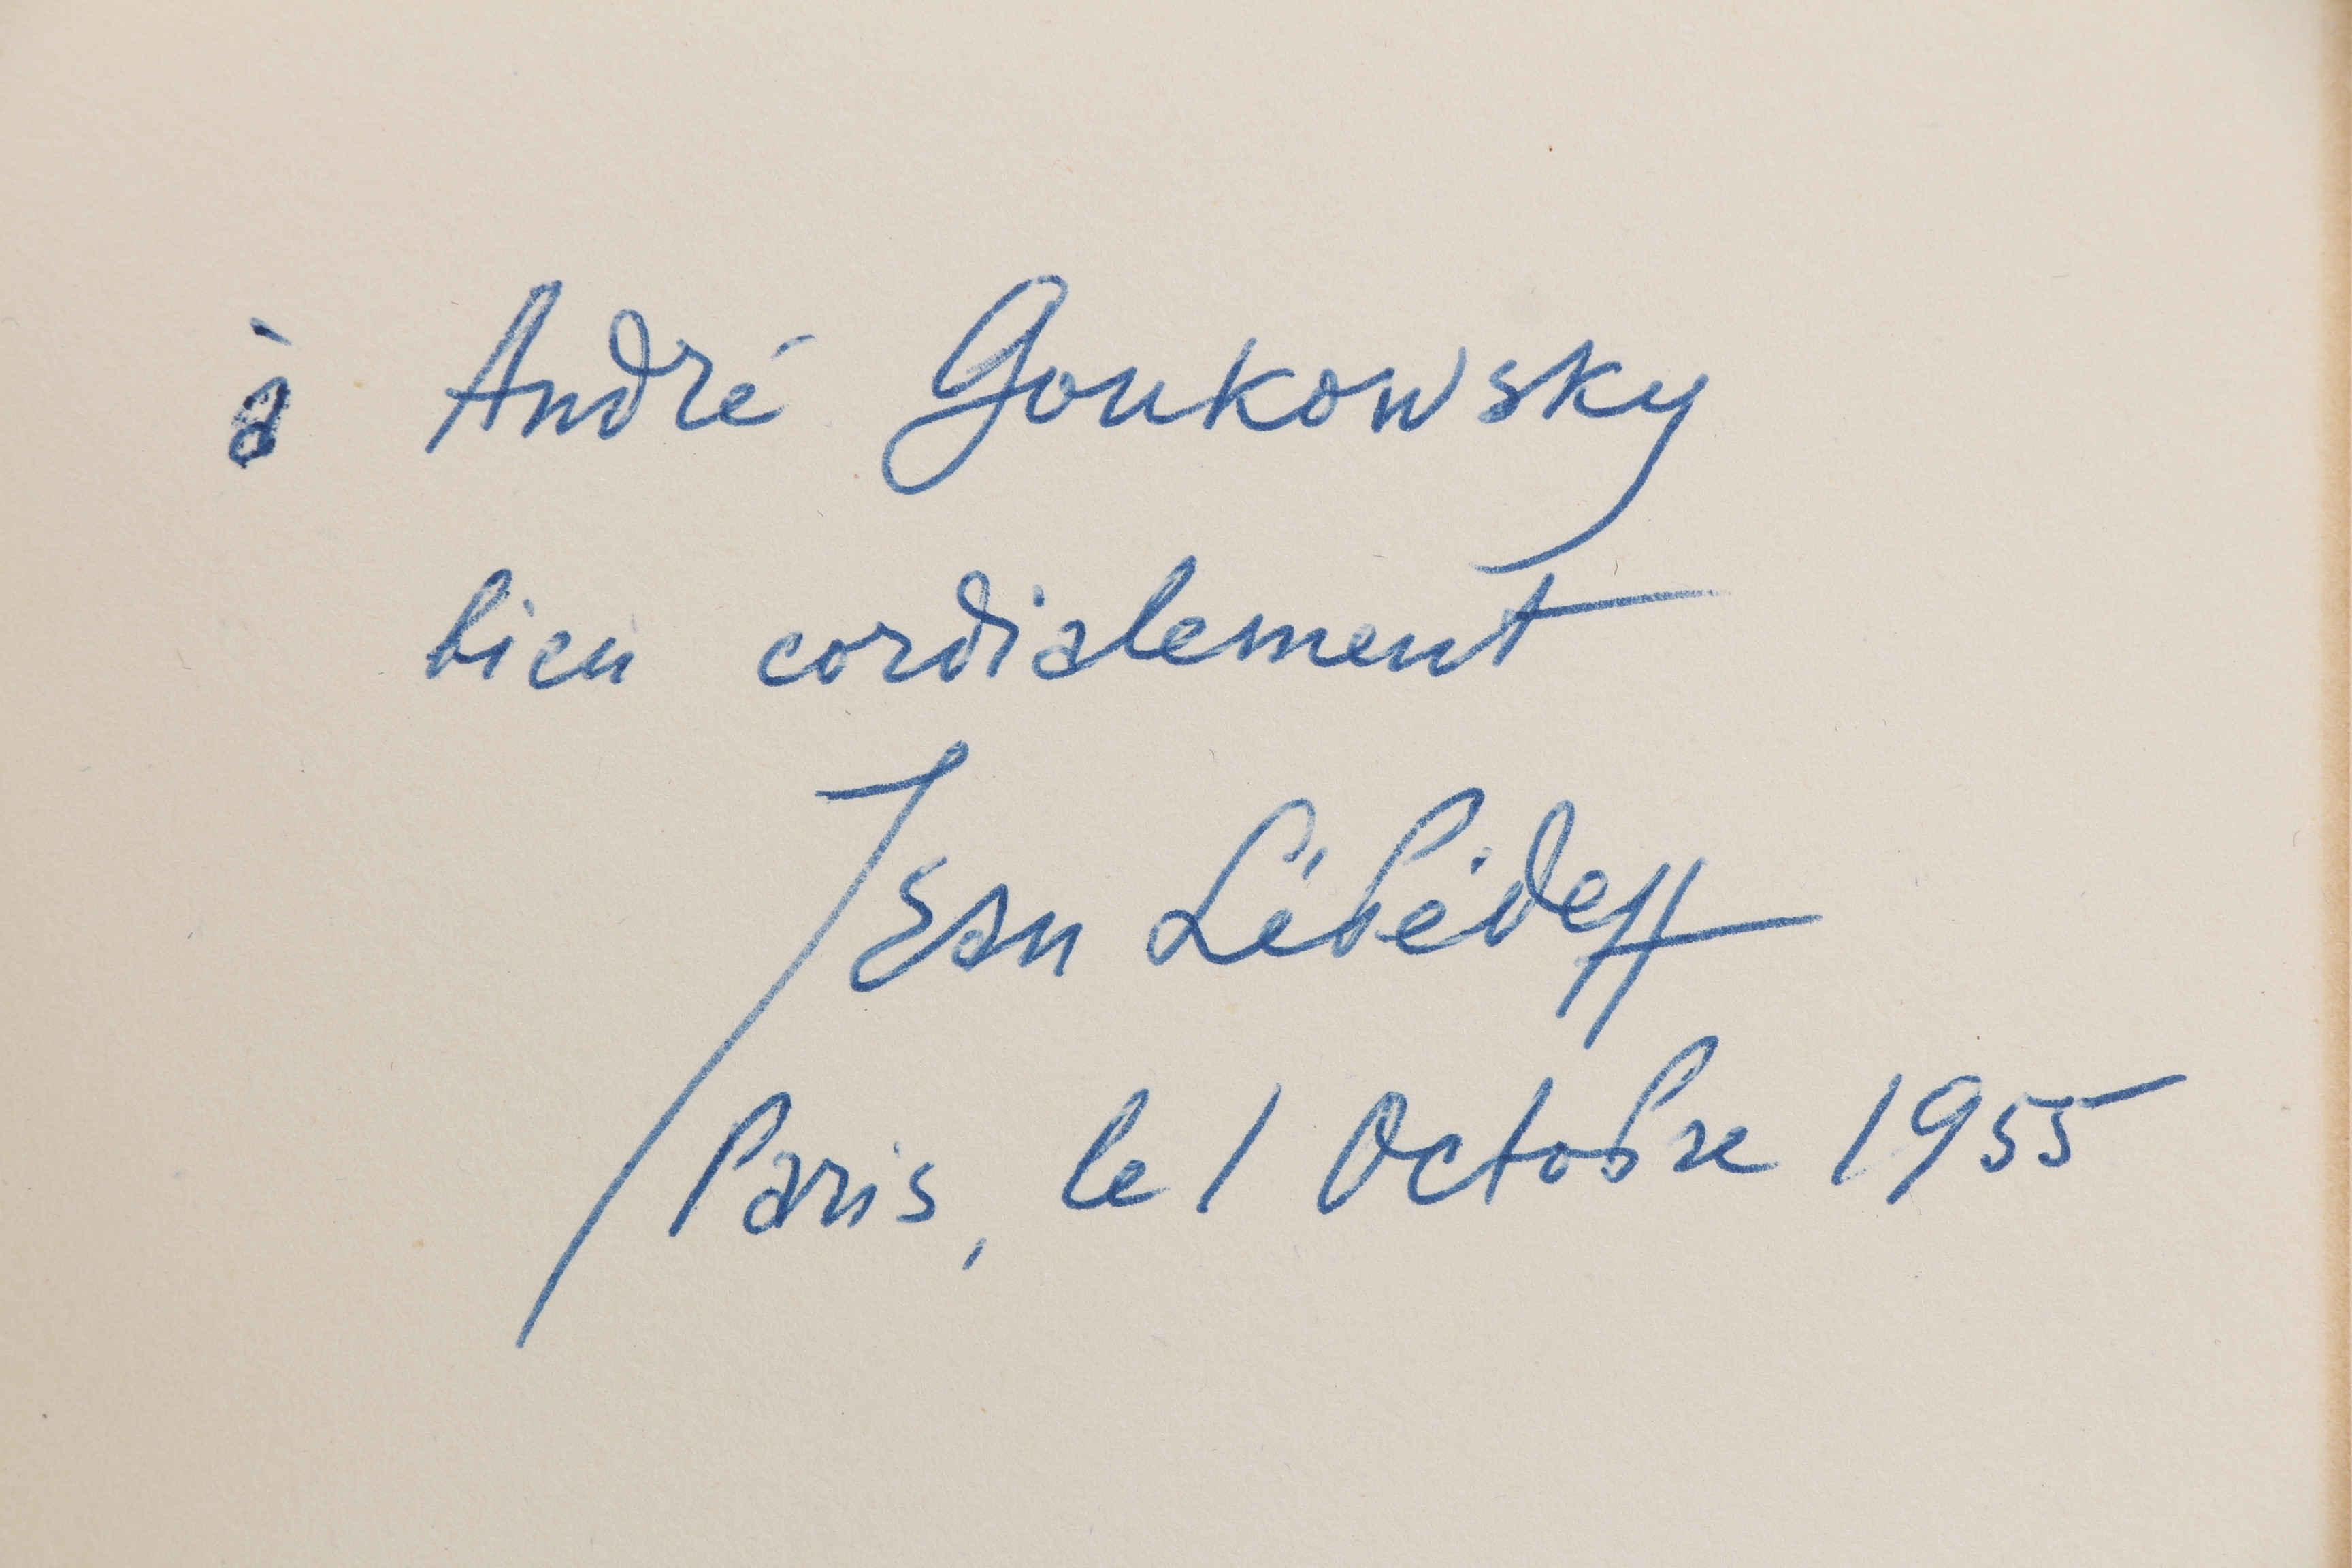 à André Goukowsky
bien cordialement
Jean Lébédeff
Paris, le 1 Octobre 1955